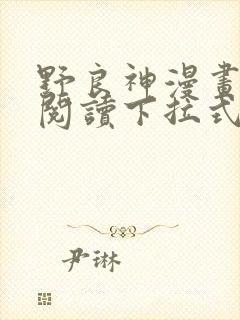 野良神漫畫
閱讀下拉式
尹琳